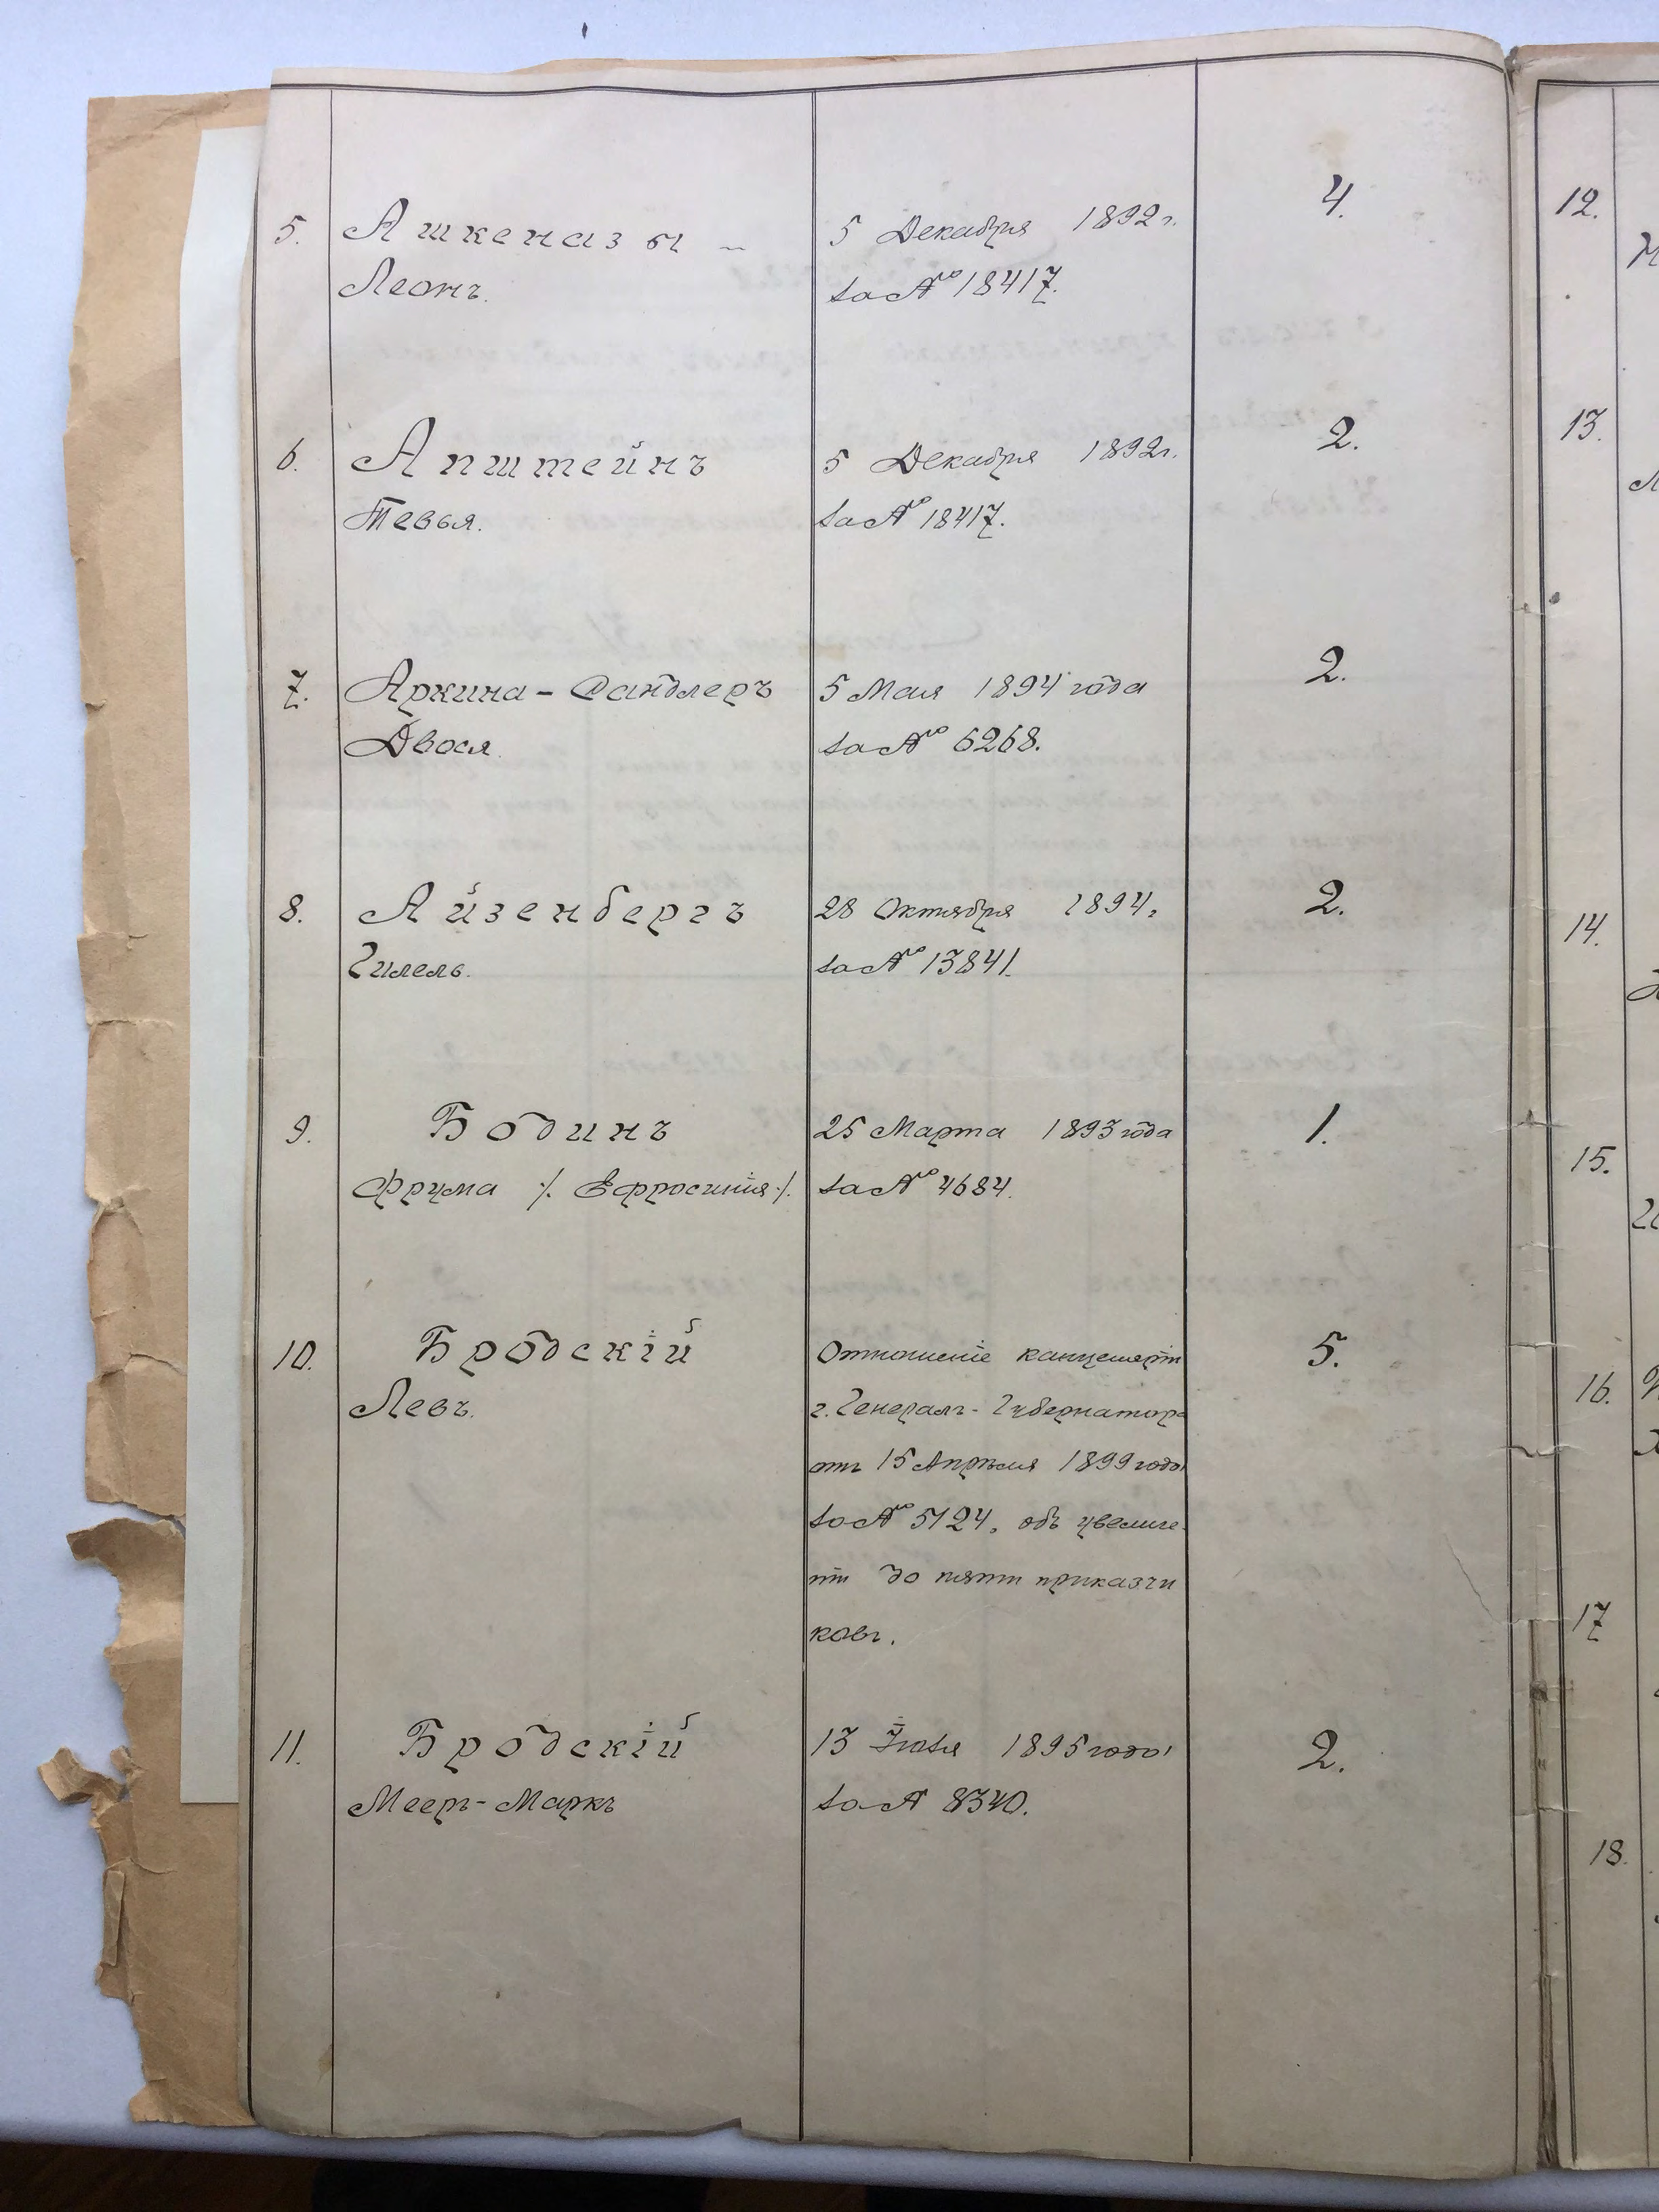 5. Ашкенази - 5 Декабря 1892 г. 4.
Леонъ. за № 18417.
6. Апштейнъ 5 Декабря 1892 г. 2.
Тевья. за № 18417.
7. Аркина - Сандлеръ 5 Мая 1894 года 2.
Двося за № 6268.
8. Айзенбергъ 28 Октября 1894. 2.
Гилель. за № 13841.
9. Бодинъ 25 Марта 1893 года 1.
Фрума /. Ефросинія ./. за № 4684.
10. Бродскій Отношеніе канцеляріи 5.
Левъ. г. Генералъ-Губернатора
отъ 15 Апрѣля 1899 года
за № 5124, объ увеличе-
ніи до пяти приказчи
ковъ.
11. Бродскій 13 1895 года 2.
Мееръ-Маркъ за № 8340.
12.
13.
14.
15.
16.
17
18.